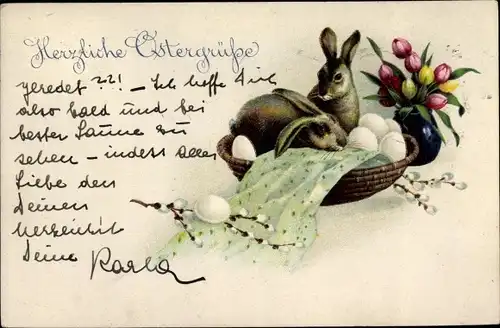 Herzliche Ostergrüße
geredet ??! – Ich hoffe Dich
also bald und bei
bester Laune zu
sehen – indess alles
Liebe den
Deinen
herzlichst
Deine Karla